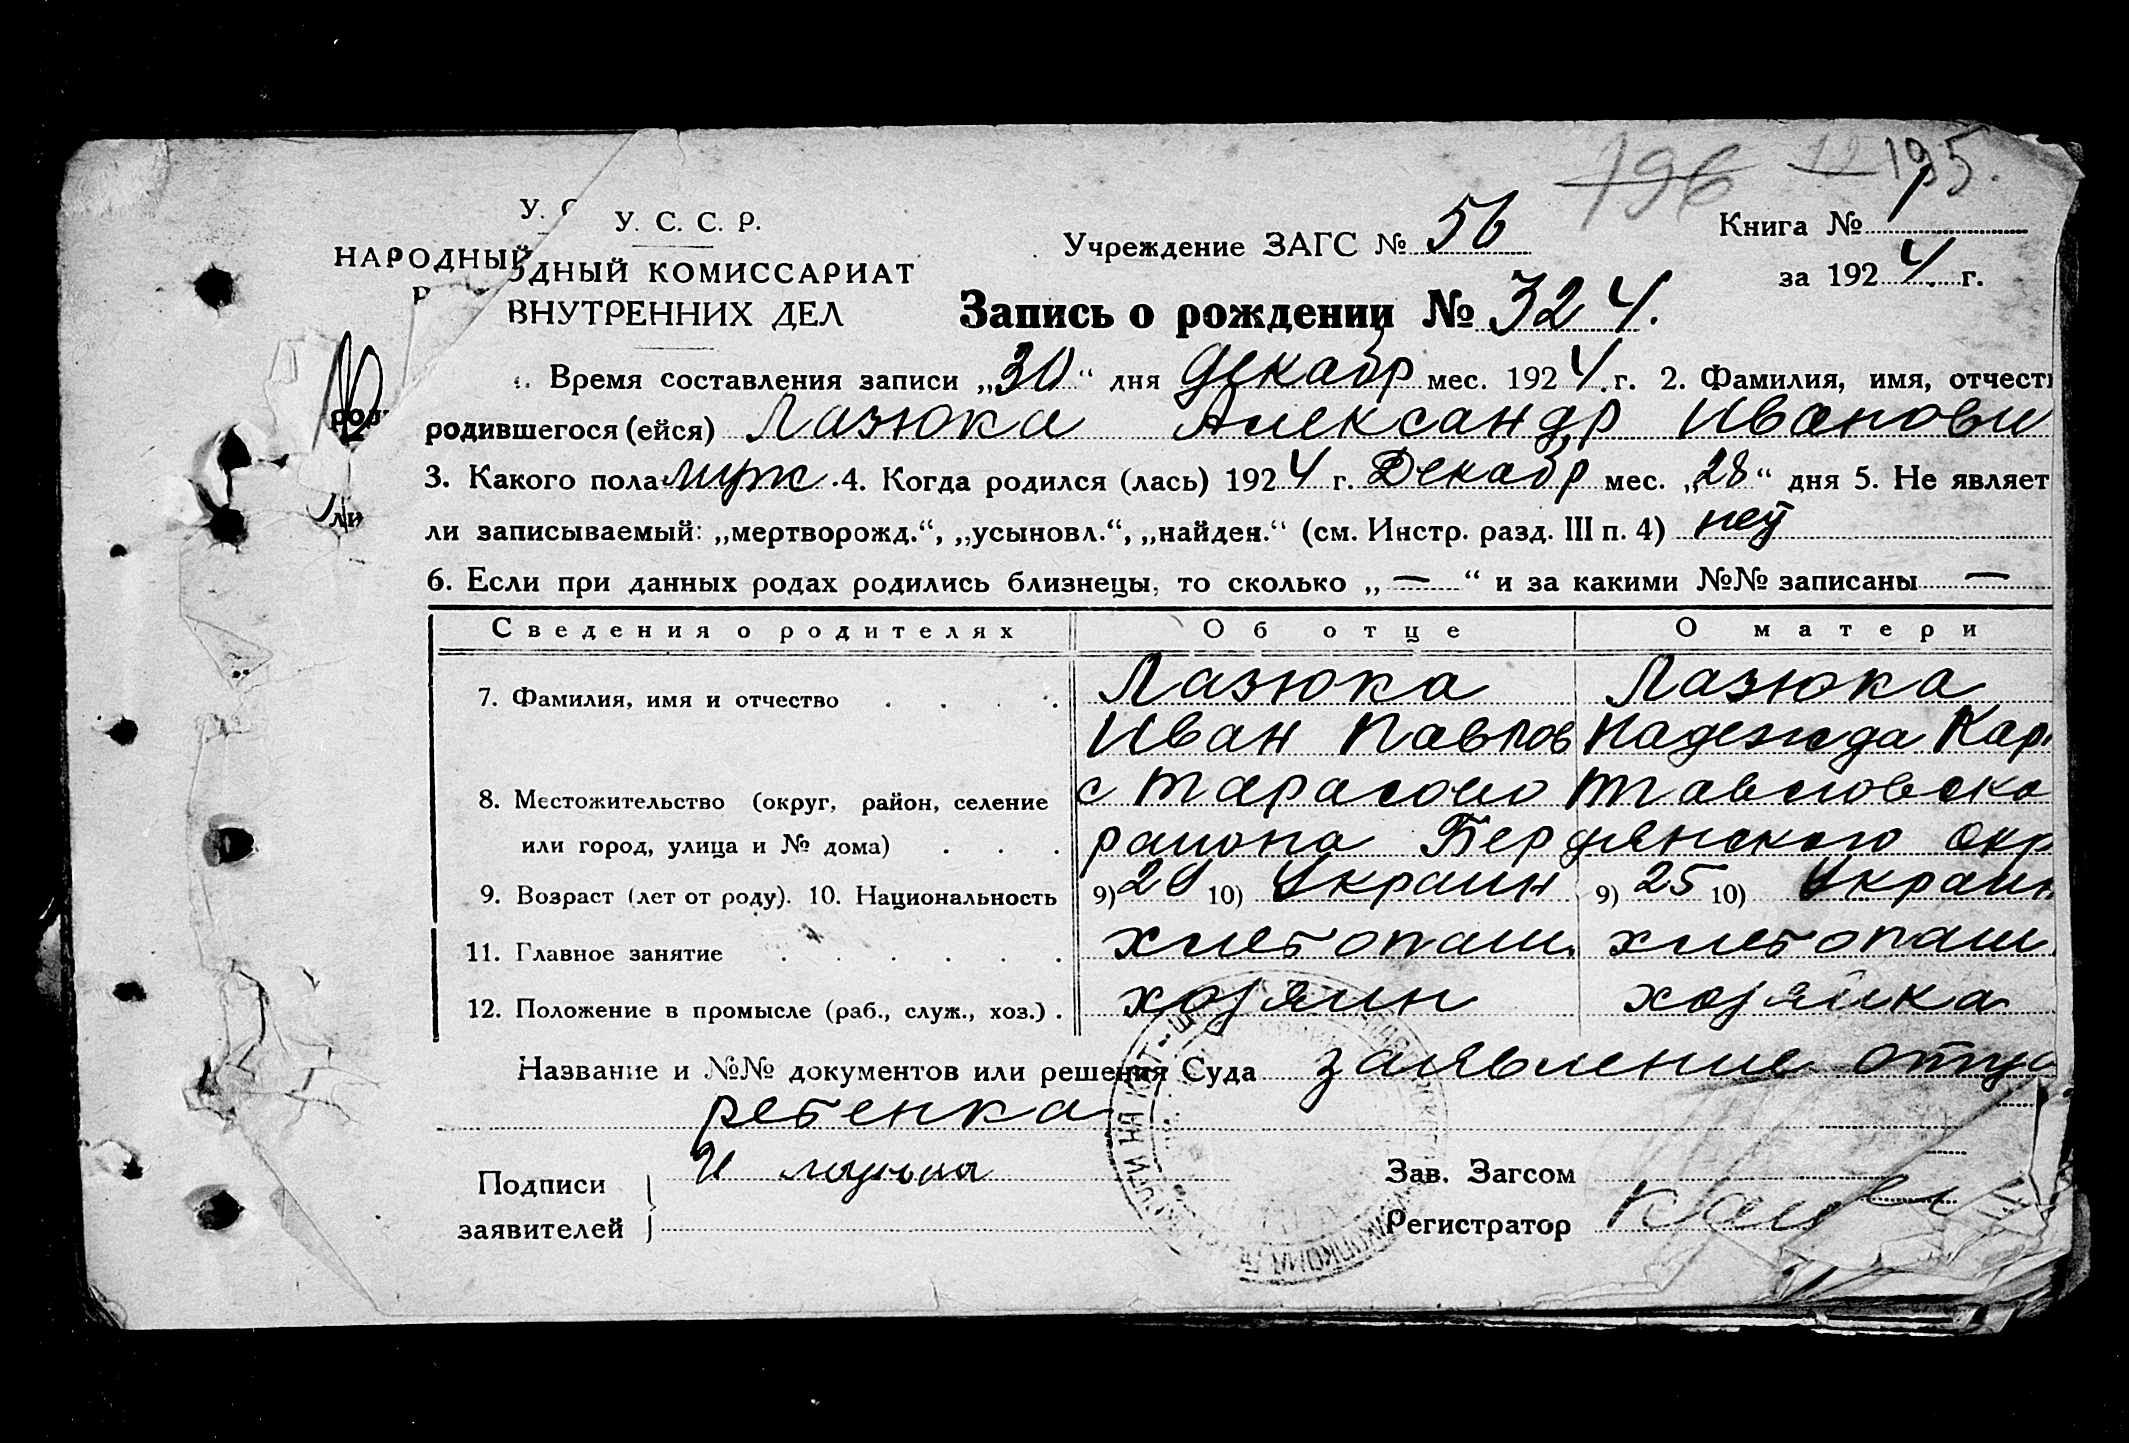 196 12 195.
У. С У. С. С. Р.
Учреждение ЗАГС № 56
Книга №
НАРОДНЫЙ ОДНЫЙ КОМИССАРИАТ
за 1924 г.
ВНУТРЕННИХ ДЕЛ
Запись о рождении № 324.
Время составления записи „30“ дня Декабр мес. 1924. г. 2. Фамилия, имя, отчест
родившегося (ейся) Лазюка Александр Иванови
3. Какого пола муж. 4. Когда родился (лась) 1924 г. Декабр мес. „28“ дня 5. Не являет
ли
ли записываемый: „мертворожд.“, „усыновл.“, „найден.“ (см. Инстр. разд. III п. 4) нет
6. Если при данных родах родились близнецы, то сколько „—“ и за какими №№ записаны —
Сведения о родителях Об отце О матери
7. Фамилия, имя и отчество Лазюка Лазюка
Иван Павлов Надежда Кар
8. Местожительство (округ, район, селение с Тарасово
или город, улица и № дома) района Бердянского окр
9. Возраст (лет от роду). 10. Национальность 9) 10) Украин 9) 25 10) Украин
11. Главное занятие хлебопаш. хлебопаш.
12. Положение в промысле (раб., служ., хоз.) хозяин хозяйка
Название и №№ документов или решения Суда заявление отца
ребенка
Подписи
Зав. Загсом
заявителей
Регистратор